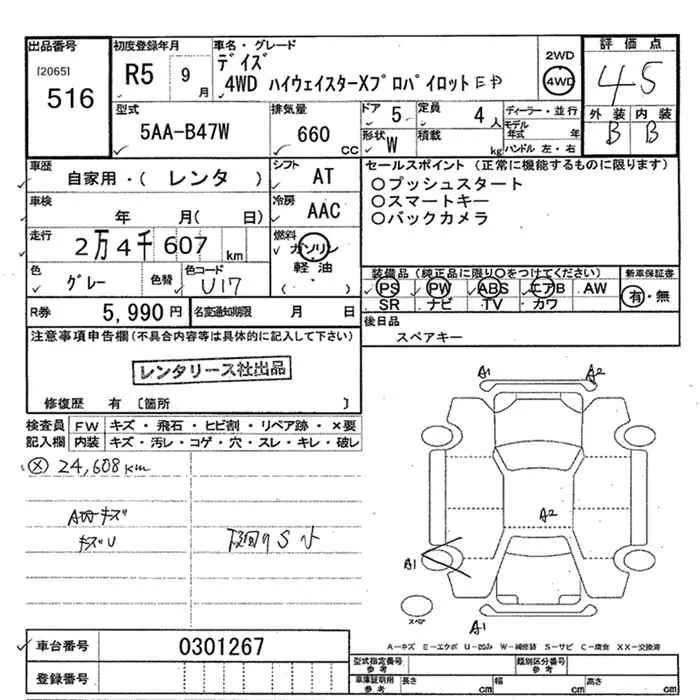 出品番号
[2065]
516
初度登録年月
R5 9月
車名・グレード
デイズ
4WD ハイウェイスターXプロパイロットE
2WD
4WD
評価点
4.5
外装 内装
B B
型式
5AA-B47W
排気量
660 CC
ドア 5
定員 4人
形状 W
積載 kg
ディーラー・並行
モデル年式 年
ハンドル 左・右
車歴
自家用・( レンタ )
シフト
AT
車検
年 月( 日)
冷房
AAC
走行
2万4千607 km
燃料
ガソリン
軽油
( ・ )
色
グレー
色替
色コード
U17
セールスポイント (正常に機能するものに限ります)
○プッシュスタート
○スマートキー
○バックカメラ
装備品 (純正品に限り○をつけてください)
PS PW ABS エアB AW
SR ナビ TV カワ
新車保証書
有・無
R券 5,990円
名変通知期限 月 日
後日品
スペアキー
注意事項申告欄 (不具合内容等は具体的に記入して下さい)
レンタリース社出品
修復歴 有 〔箇所 〕
検査員記入欄
FW キズ・飛石・ヒビ割・リペア跡・×要
内装 キズ・汚レ・コゲ・穴・スレ・キレ・破レ
24,608km
キズ
キズU
S小
A1 A2
A2
A1
A1
スペア
A-キズ E-エクボ U-凹み W-補修跡 S-サビ C-腐食 XX-交換済
車台番号 0301267
登録番号
型式指定番号 参考
類別区分番号 参考
車庫証明用 参考
長さ cm 幅 cm 高さ cm